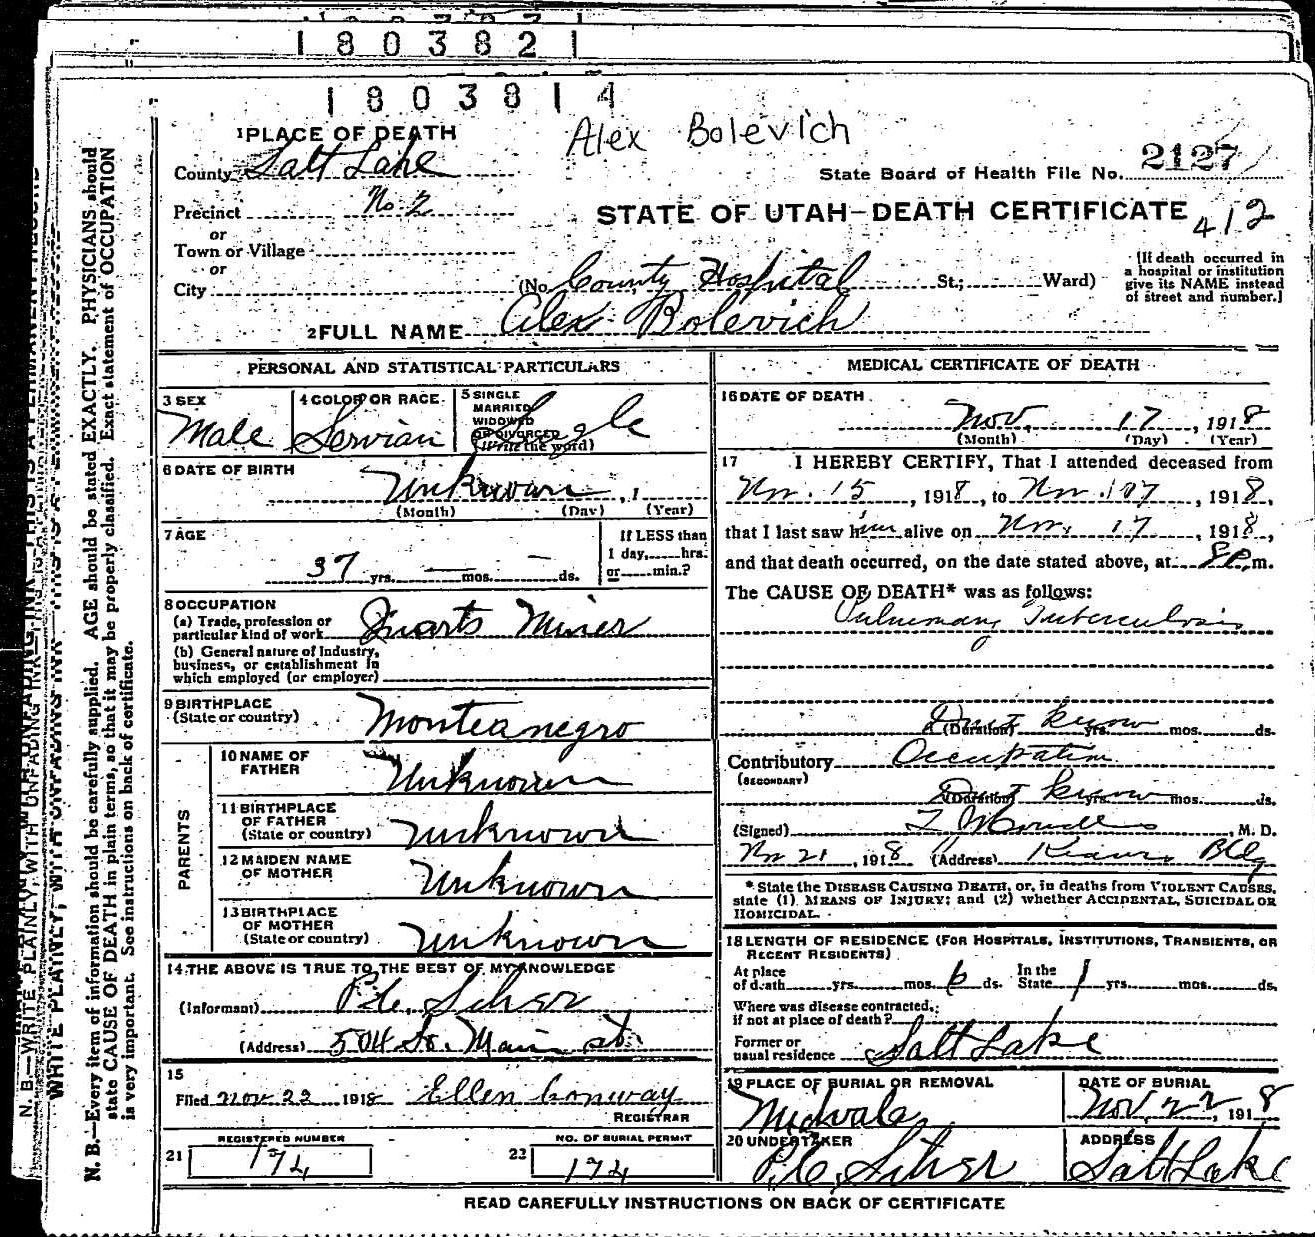 1803821
1803814
Alex Bolevich
1 PLACE OF DEATH
County Salt Lake
State Board of Health File No. 2127
Precinct No. 2
STATE OF UTAH—DEATH CERTIFICATE 412
or
Town or Village
or
City (No. County Hospital St.; Ward)
[If death occurred in a hospital or institution give its NAME instead of street and number.]
2 FULL NAME Alex Bolevich
PERSONAL AND STATISTICAL PARTICULARS
3 SEX Male
4 COLOR OR RACE Servian
5 SINGLE MARRIED WIDOWED OR DIVORCED (Write the word) Single
6 DATE OF BIRTH Unknown, 1
(Month) (Day) (Year)
7 AGE 37 yrs. — mos. — ds.
If LESS than 1 day, hrs. or min.?
8 OCCUPATION
(a) Trade, profession or particular kind of work Quarts Miner
(b) General nature of Industry, business, or establishment in which employed (or employer)
9 BIRTHPLACE (State or country) Monteanegro
PARENTS
10 NAME OF FATHER Unknown
11 BIRTHPLACE OF FATHER (State or country) Unknown
12 MAIDEN NAME OF MOTHER Unknown
13 BIRTHPLACE OF MOTHER (State or country) Unknown
14 THE ABOVE IS TRUE TO THE BEST OF MY KNOWLEDGE
(Informant)
(Address) 504 So. Main St.
15
Filed Nov 22 1918 Ellen Conway
REGISTRAR
21 REGISTERED NUMBER 174
22 NO. OF BURIAL PERMIT 174
MEDICAL CERTIFICATE OF DEATH
16 DATE OF DEATH
Nov. 17, 1918
(Month) (Day) (Year)
17 I HEREBY CERTIFY, That I attended deceased from
Nov. 15, 1918, to Nov. 17, 1918,
that I last saw him alive on Nov. 17, 1918,
and that death occurred, on the date stated above, at 8 P. m.
The CAUSE OF DEATH* was as follows:
Pulmonary Tuberculosis
(Duration) Dont know yrs. mos. ds.
Contributory Occupation
(SECONDARY)
(Duration) Dont know yrs. mos. ds.
(Signed) , M. D.
Nov 21, 1918 (Address) Kearns Bldg
* State the DISEASE CAUSING DEATH, or, in deaths from VIOLENT CAUSES, state (1) MEANS OF INJURY; and (2) whether ACCIDENTAL, SUICIDAL OR HOMICIDAL.
18 LENGTH OF RESIDENCE (FOR HOSPITALS, INSTITUTIONS, TRANSIENTS, OR RECENT RESIDENTS)
At place of death yrs. mos. 6 ds. In the State 1 yrs. mos. ds.
Where was disease contracted, if not at place of death?
Former or usual residence Salt Lake
19 PLACE OF BURIAL OR REMOVAL Midvale
DATE OF BURIAL Nov. 22, 1918
20 UNDERTAKER
ADDRESS Salt Lake
READ CAREFULLY INSTRUCTIONS ON BACK OF CERTIFICATE
N. B.—Every item of information should be carefully supplied. AGE should be stated EXACTLY. PHYSICIANS should
state CAUSE OF DEATH in plain terms, so that it may be properly classified. Exact statement of OCCUPATION
is very important. See instructions on back of certificate.